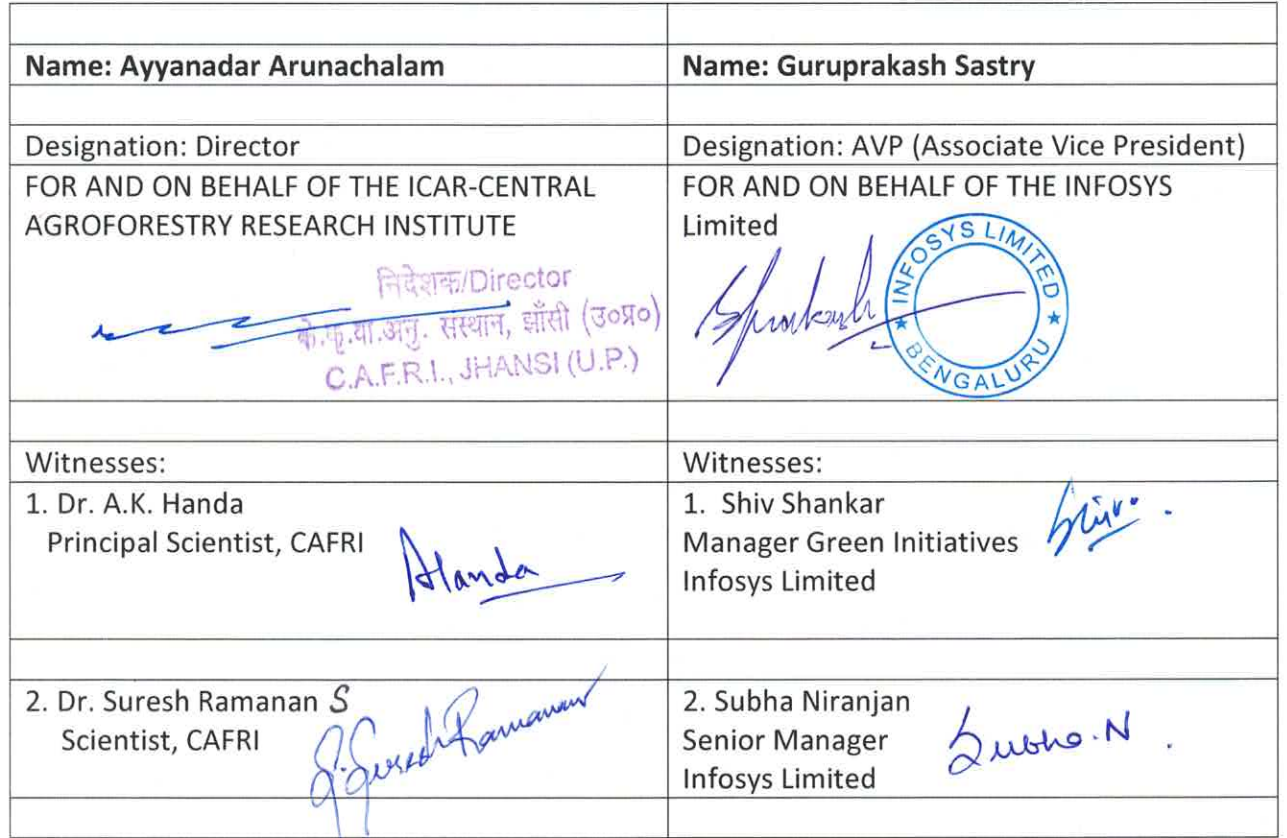 Name: Ayyanadar Arunachalam
Name: Guruprakash Sastry
Designation: Director
Designation: AVP (Associate Vice President)
FOR AND ON BEHALF OF THE ICAR-CENTRAL
AGROFORESTRY RESEARCH INSTITUTE
निदेशक/Director
के.कृ.वा.अनु. संस्थान, झाँसी (उ०प्र०)
C.A.F.R.I., JHANSI (U.P.)
FOR AND ON BEHALF OF THE INFOSYS
Limited
INFOSYS LIMITED
★ BENGALURU ★
Witnesses:
1. Dr. A.K. Handa
Principal Scientist, CAFRI
AHanda
Witnesses:
1. Shiv Shankar
Manager Green Initiatives
Infosys Limited
2. Dr. Suresh Ramanan S
Scientist, CAFRI
S. Suresh Ramanan
2. Subha Niranjan
Senior Manager
Infosys Limited
Subha.N